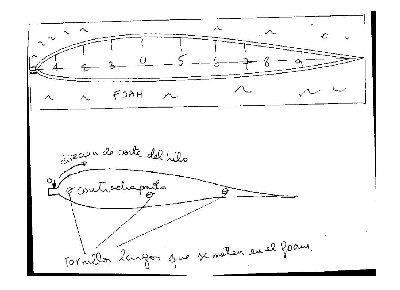 2 3 5 6 7 8 9
FOAM
dirección de corte del hilo
contrachapado
tornillos largos que se meten en el foam.